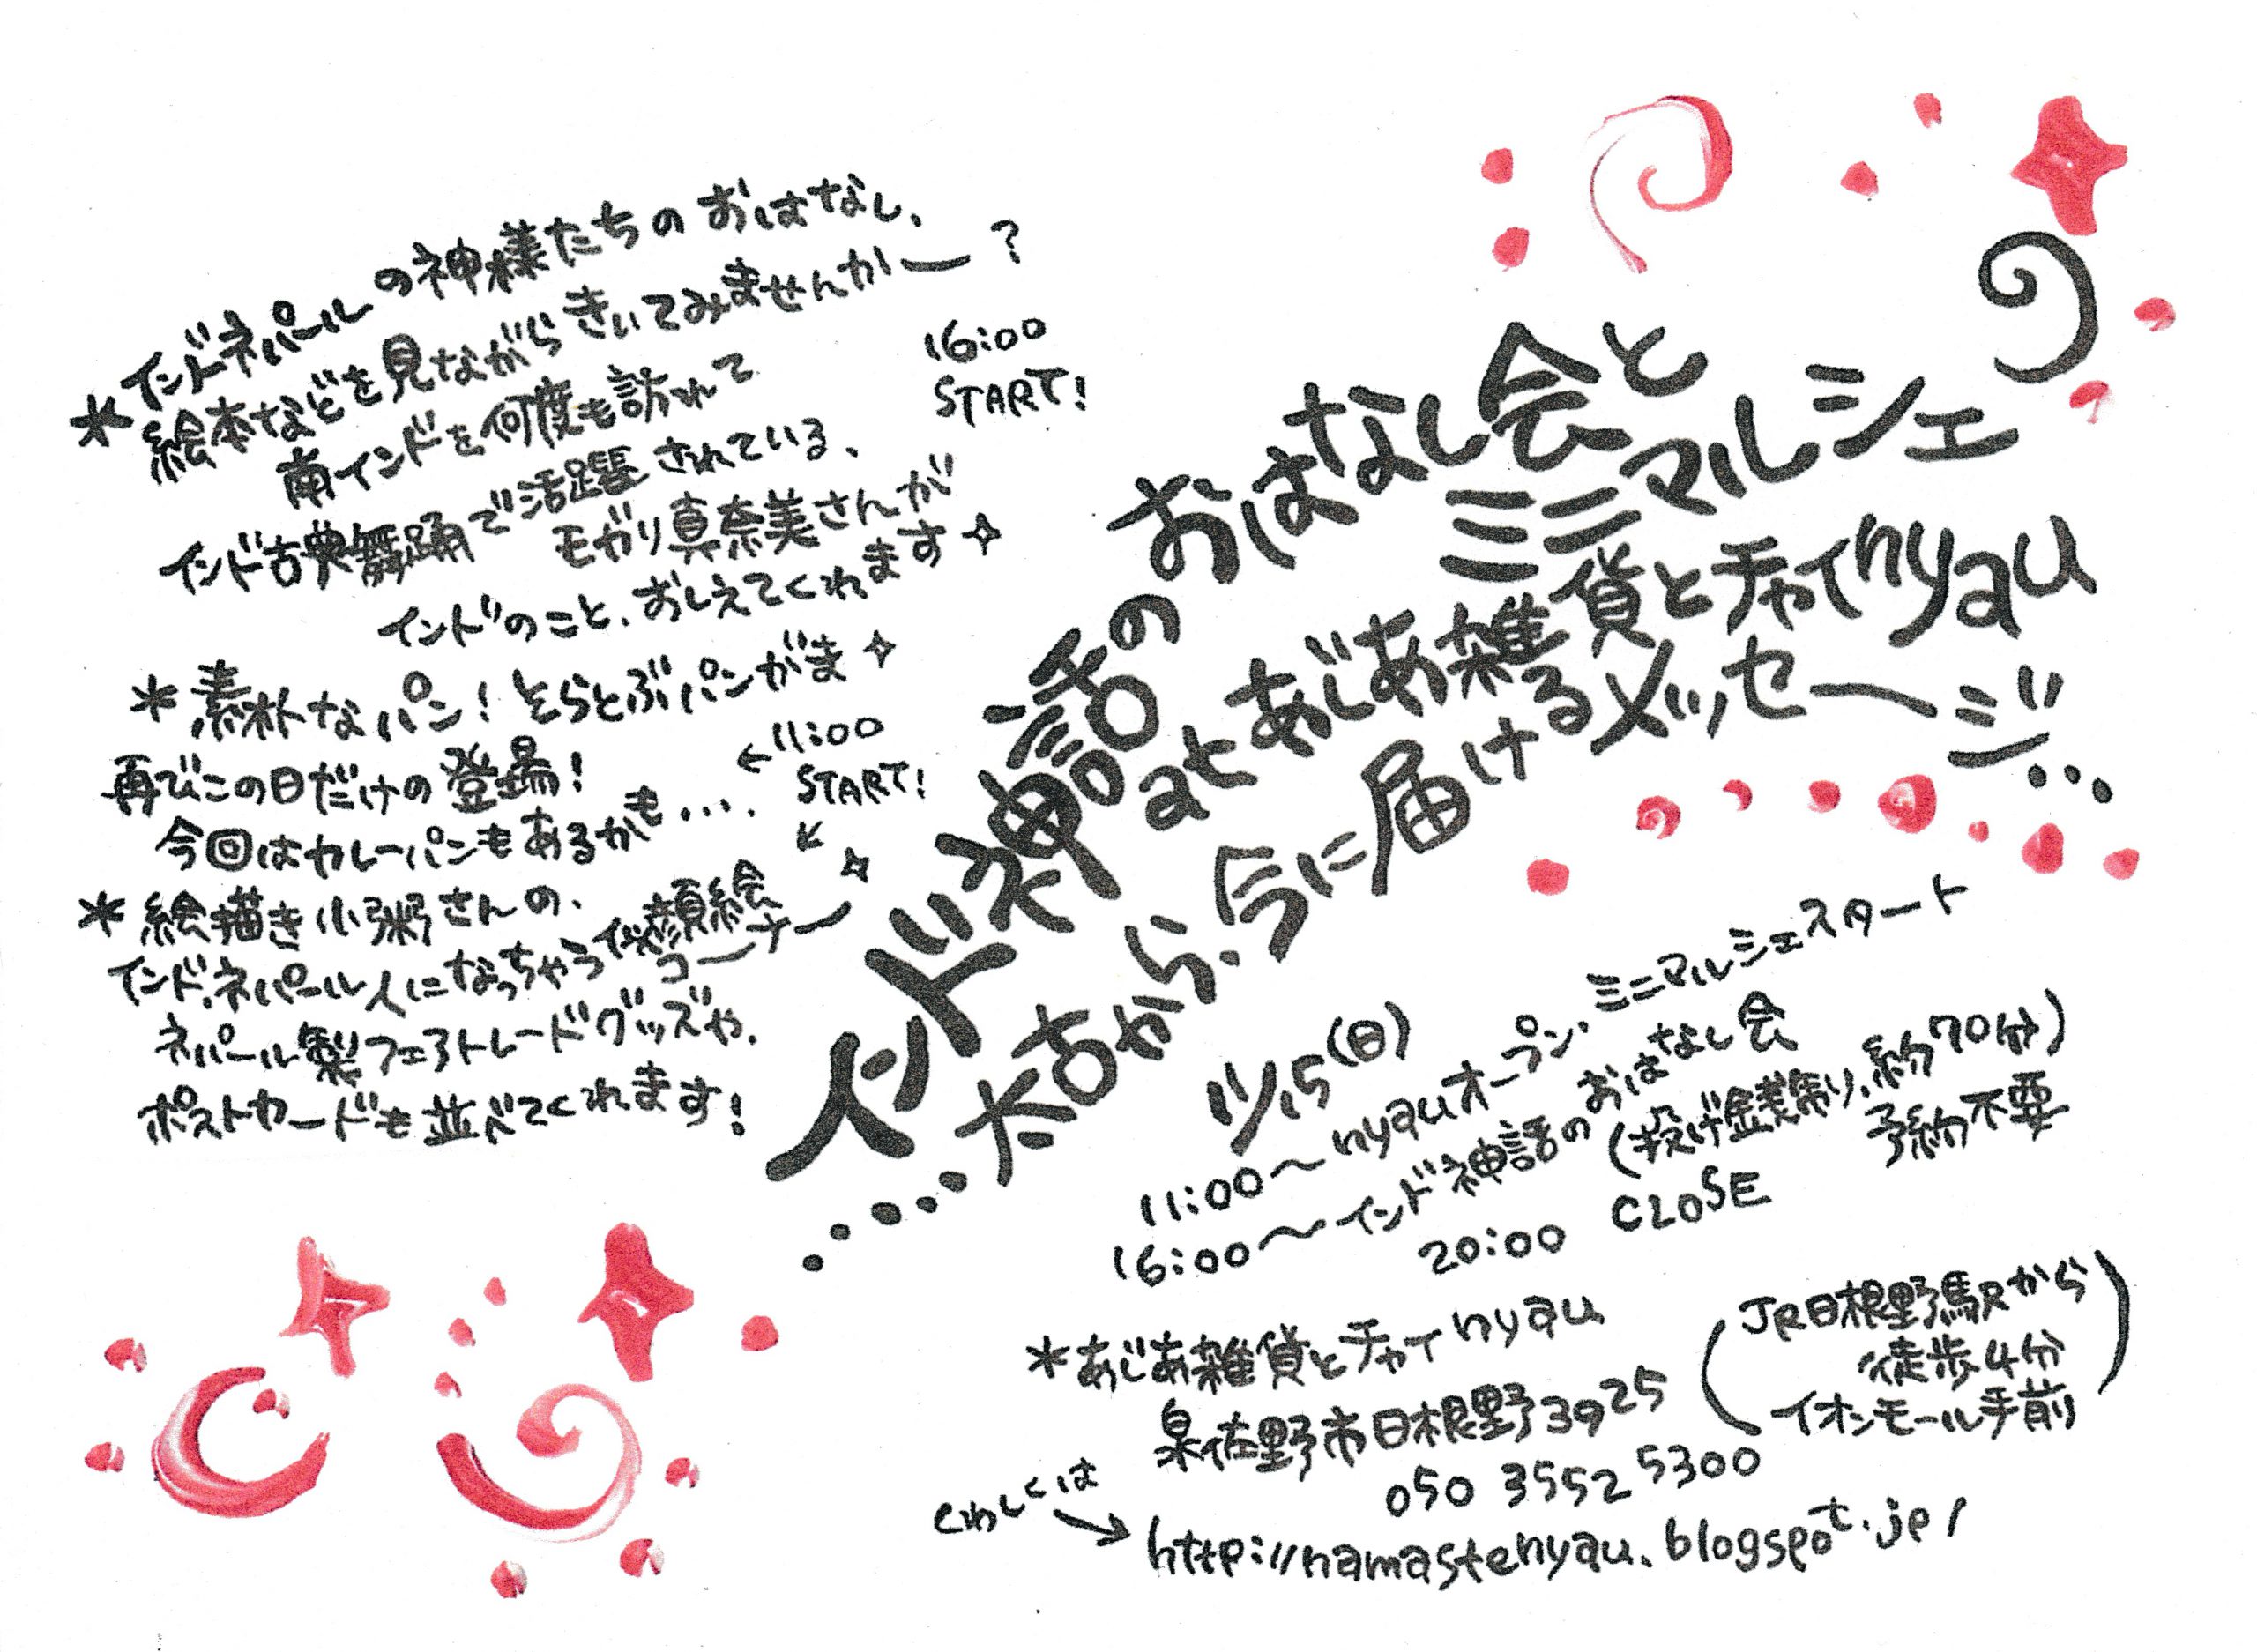 インド神話のおはなし会と
ミニマルシェ
at あじあ雑貨とチャイnyau
....太古から、今に届けるメッセージ...
*インドネパールの神様たちのおはなし、
絵本などを見ながらきいてみませんかー?
南インドを何度も訪れて
インド古典舞踊で活躍されている、
モガリ真奈美さんが
インドのこと、おしえてくれます✧
16:00
START!
*素朴なパン!そらとぶパンがま✧
再びこの日だけの登場!
今回はカレーパンもあるかも....
←11:00
START!
↙
*絵描き小粥さんの、
インド、ネパール人になっちゃう似顔絵
コーナー✧
ネパール製フェアトレードグッズや、
ポストカードも並べてくれます!
11/15(日)
11:00〜nyauオープン、ミニマルシェスタート
16:00〜インド神話のおはなし会
(投げ銭制り、約70分)
予約不要
20:00 CLOSE
*あじあ雑貨とチャイnyau
泉佐野市日根野3925
(JR日根野駅から
徒歩4分
イオンモール手前)
050 3552 5300
くわしくは
→http://namastenyau.blogspot.jp/